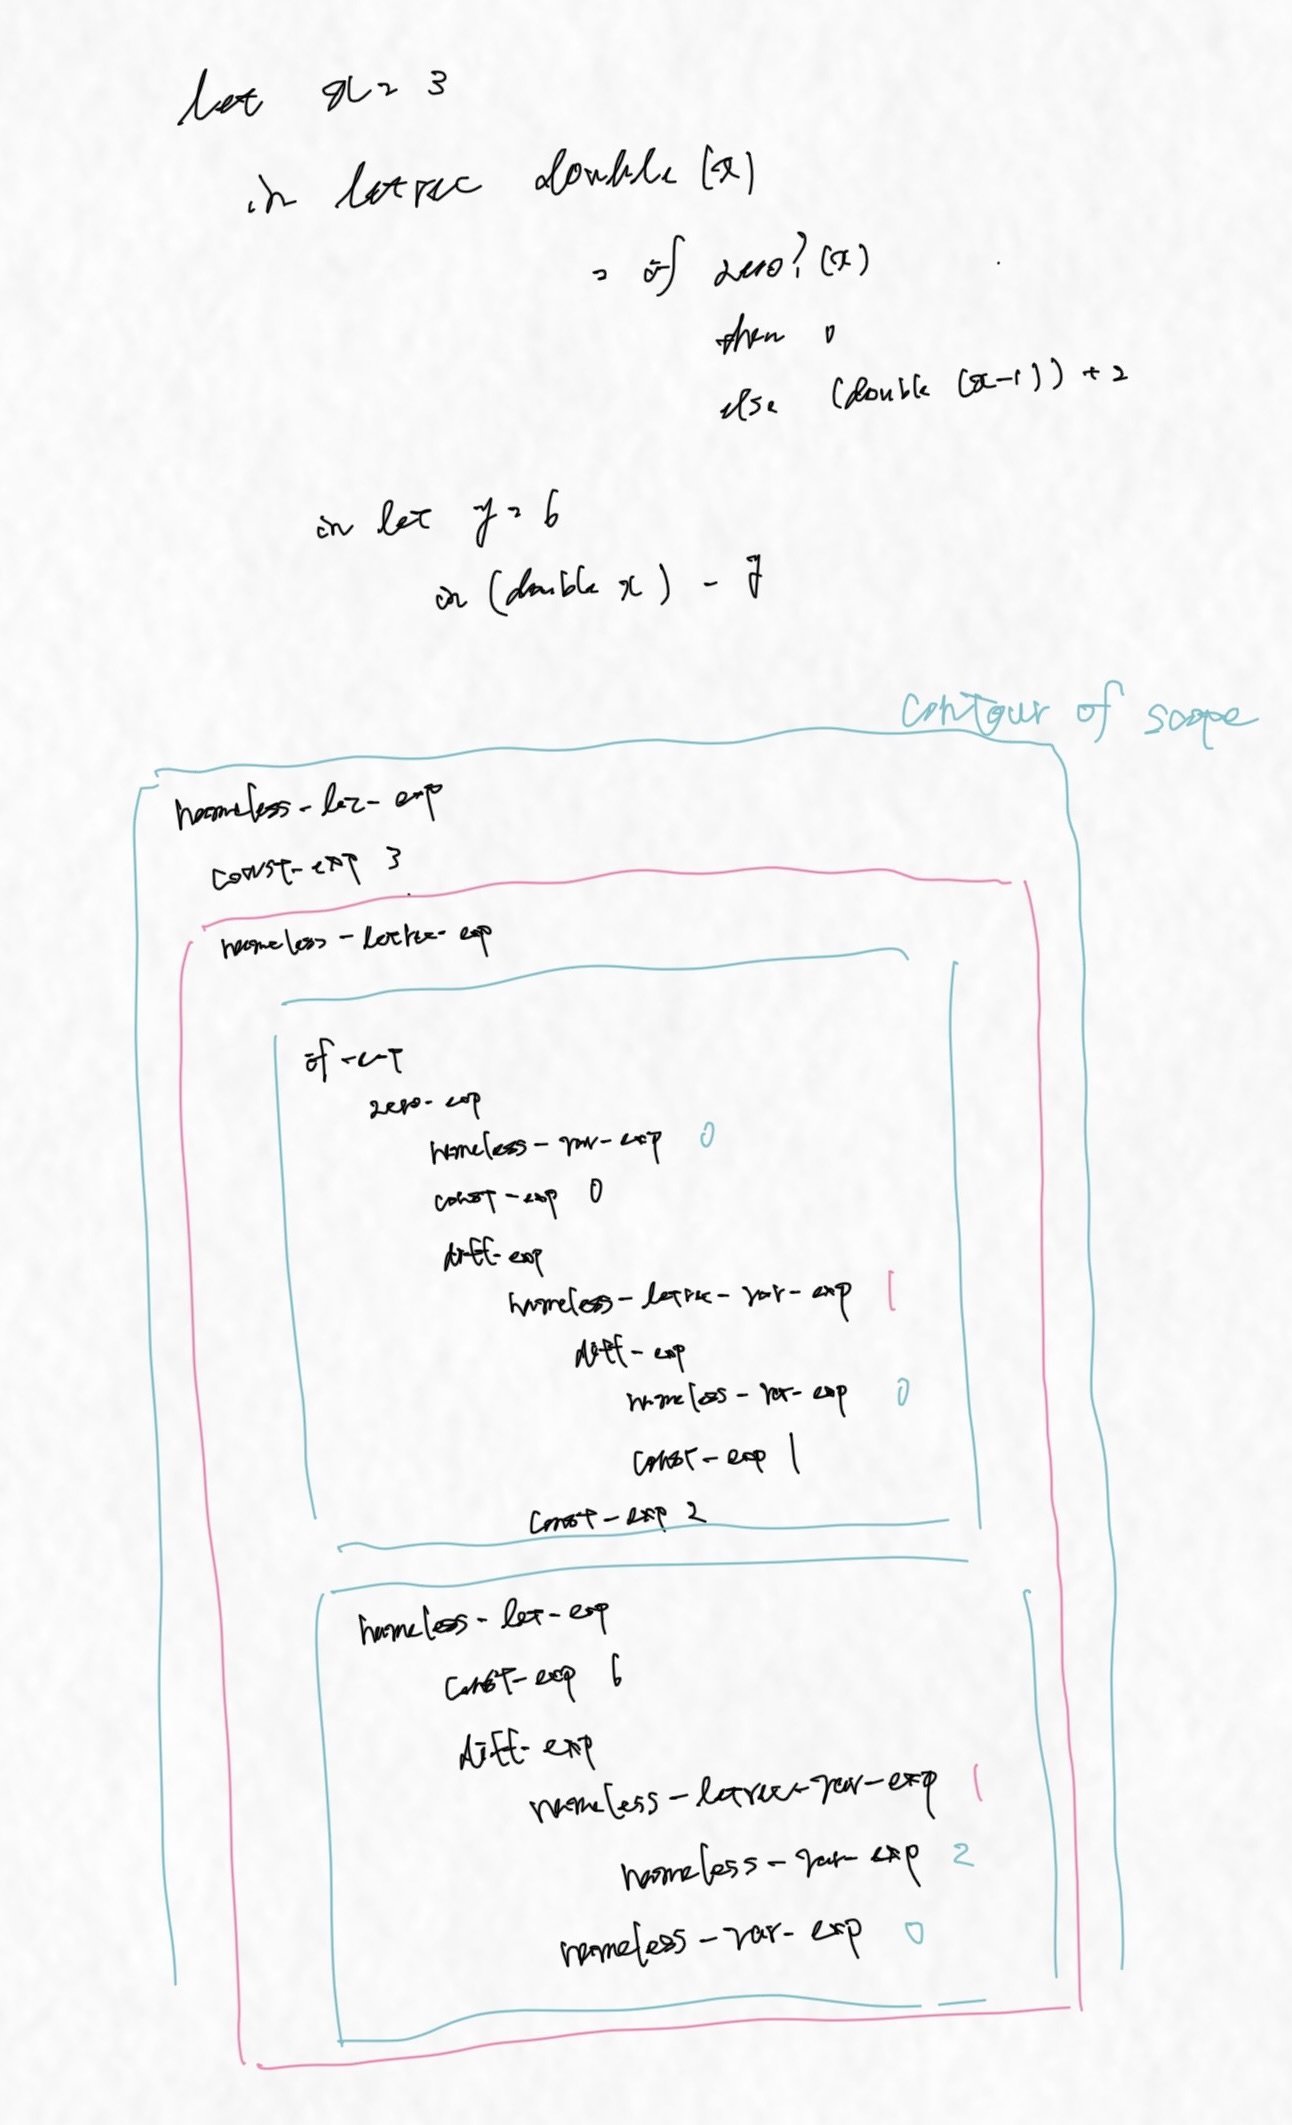 let x = 3
in letrec double (x)
= if zero? (x)
then 0
else (double (x-1)) + 2
in let y = 6
in (double x) - y
contour of scope
nameless-let-exp
const-exp 3
nameless-letrec-exp
if-exp
zero-exp
nameless-var-exp 0
const-exp 0
diff-exp
nameless-letrec-var-exp 1
diff-exp
nameless-var-exp 0
const-exp 1
const-exp 2
nameless-let-exp
const-exp 6
diff-exp
nameless-letrec-var-exp 1
nameless-var-exp 2
nameless-var-exp 0